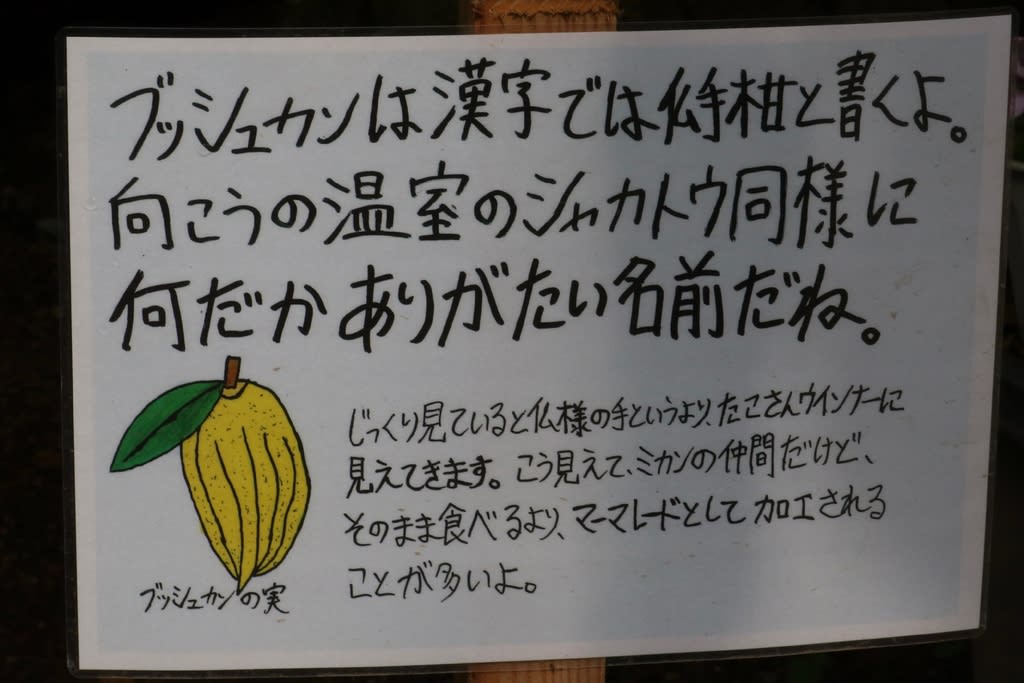 ブッシュカンは漢字では仏手柑と書くよ。
向こうの温室のシャカトウ同様に
何だかありがたい名前だね。
じっくり見ていると仏様の手というより、たこさんウインナーに
見えてきます。こう見えて、ミカンの仲間だけど、
そのまま食べるより、マーマレードとして加工される
ことが多いよ。
ブッシュカンの実